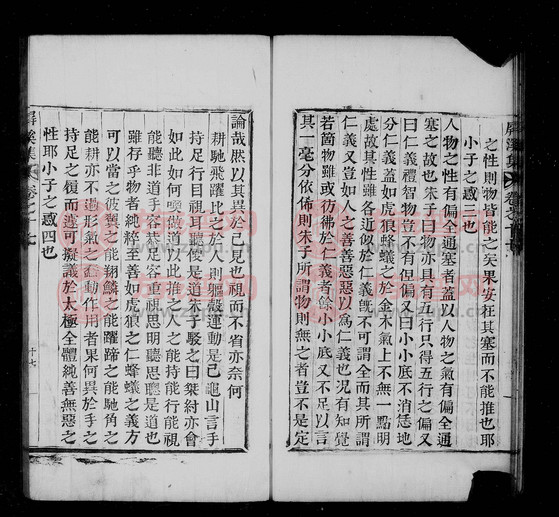 之性則物皆能之矣果安在其塞而不能推也耶
小子之惑三也
人物之性有偏全通塞者蓋以人物之氣有偏全通
塞之故也朱子曰物亦具有五行只得五行之偏又
曰仁義禮智物豈不有但偏又曰小小底不消恁地
分仁義蓋如虎狼蜂蟻之於金木氣上不無一點明
處故其性雖各近似於仁義旣不可謂全而其所謂
仁義又豈如人之善善惡惡以爲仁義也况有知覺
若箇物雖或彷彿於仁義者餘小小底又不足以言
其一毫分依俙則朱子所謂物則無之者豈不是定
論哉然以其異於己見也視而不省亦奈何
耕馳飛躍比之於人則軀殼運動是已龜山言手
持足行目視耳聽便是道朱子駁之曰桀紂亦會
如此如何喚做道以此推之人之能持能行能視
能聽非道手容恭足容重視思明聽思聰是道也
雖存乎物者純粹至善如虎狼之仁蜂蟻之義方
可以當之彼翼之能翔鱗之能躍蹄之能馳角之
能耕亦不過形氣之蠢動作用者果何異於手之
持足之履而遽可擬議於太極全體純善無惡之
性耶小子之惑四也
屛溪集
十七